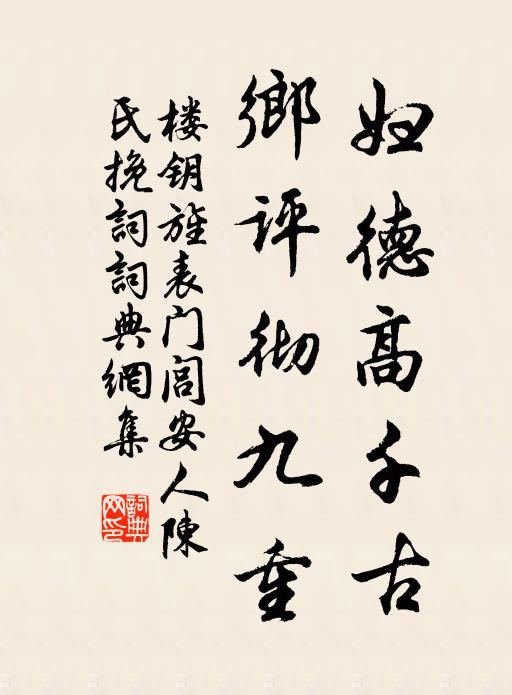 妇德高千古
鄉评彻九重
楼钥旌表门闾安人陳
氏挽詞詞典網集
詞典
网印